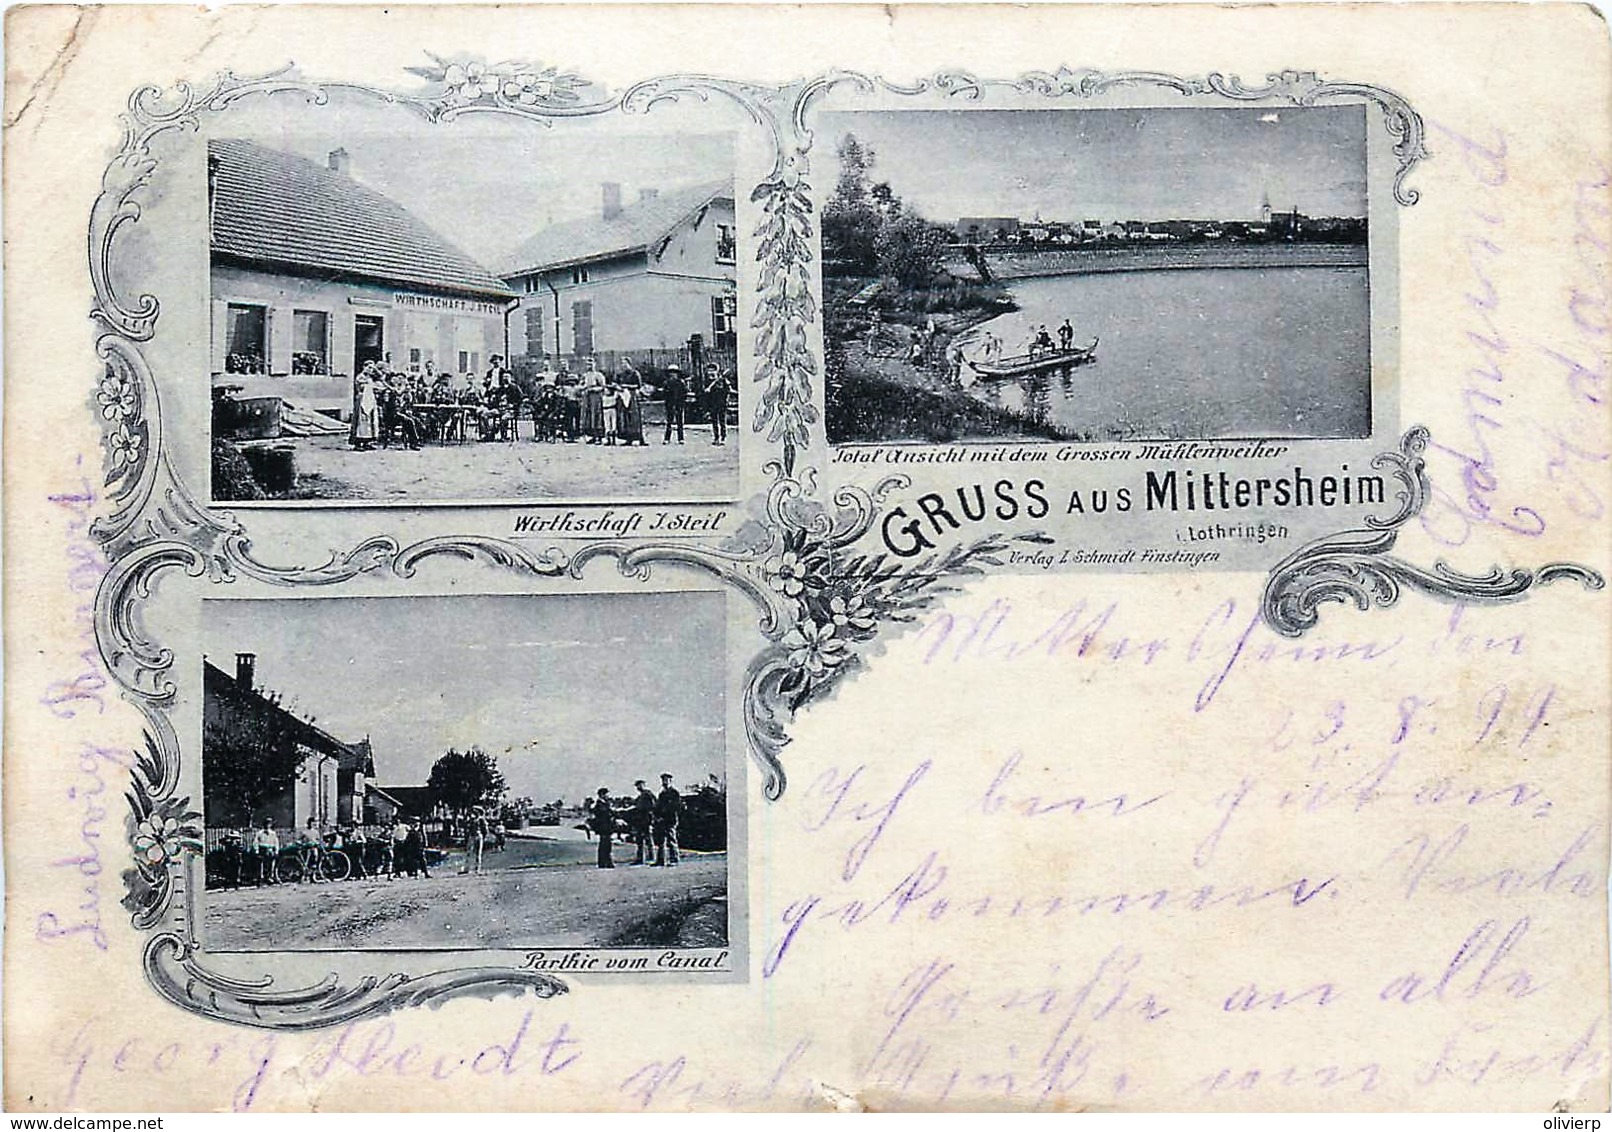 WIRTHSCHAFT J. STEIL
Wirthschaft J. Steil
Total Ansicht mit dem Grossen Mühlenweiher
GRUSS AUS Mittersheim
i. Lothringen
Verlag L Schmidt Finstingen
Parthie vom Canal
Mittersheim, den
23. 8. 99
Ich bin gut an-
gekommen. Viele
Grüße an alle
Viele Grüße vom
Georg
Ludwig
delcampe.net
olivierp